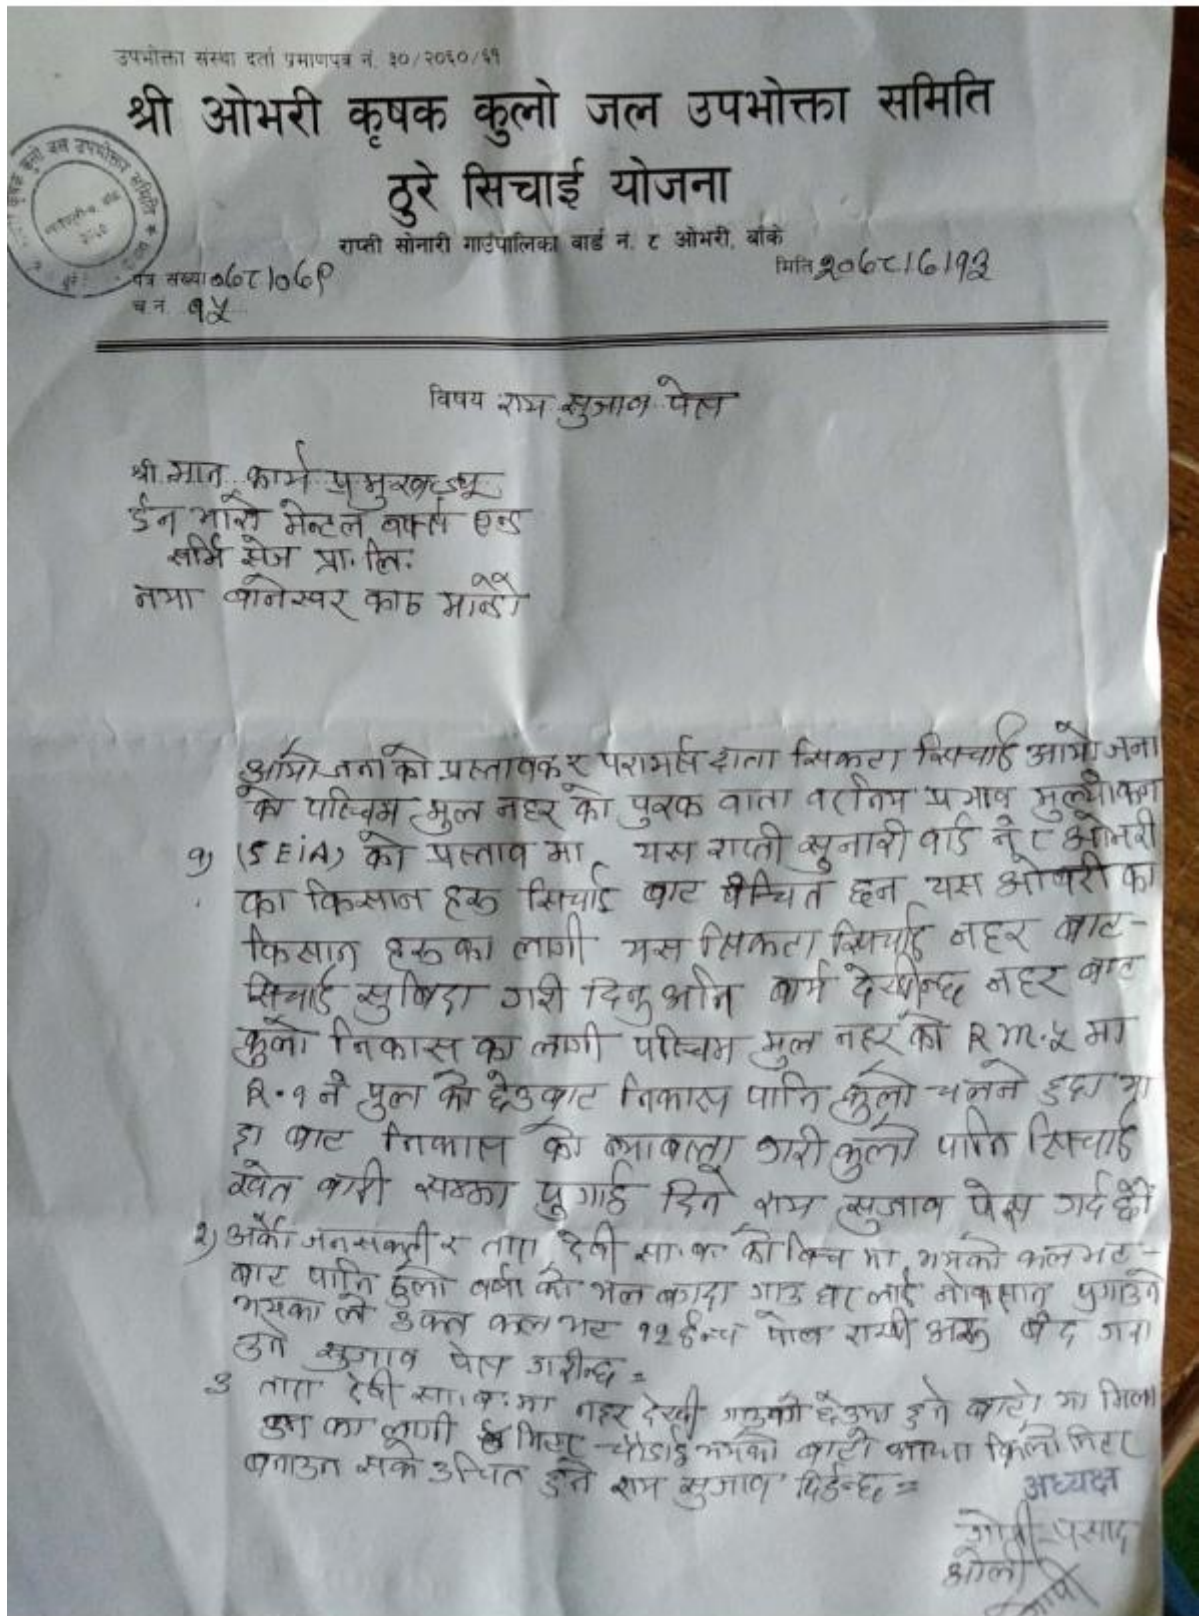 उपभोक्ता संस्था दर्ता प्रमाणपत्र नं. ३०/२०६०/६१
श्री ओभरी कृषक कुलो जल उपभोक्ता समिति
ठुरे सिचाई योजना
राप्ती सोनारी गाउँपालिका वार्ड न. ८ ओभरी, बाँके
पत्र संख्या ०७८/०७९
मिति २०७८/६/१३
च.न. १५
विषय राय सुजाव पेस
श्री मान कार्य प्रमुख ज्यू
ईन भारो मेन्टल वर्क्स एन्ड
सर्भि सेज प्रा. लि.
नया वानेस्वर काठ मान्डौ
आयोजना को प्रस्तावक र परामर्स दाता सिकटा सिचाई आयोजना
को पश्चिम मुल नहर को पुरक वाता वरनिय प्रभाव मुल्यांकन
१) (SEiA) को प्रस्ताव मा यस राप्ती सुनारी वार्ड नं ८ ओभरी
का किसान हरु सिचाई बाट बन्चित छन यस ओभरी का
किसान हरु का लागी यस सिकटा सिचाई नहर बाट-
सिचाई सुबिदा गरी दिनु देखीन्छ नहर बाट
कुलो निकास का लागी पश्चिम मुल नहर को R m. ५ मा
R-१ नं पुल को छेउबाट निकास पानि कुलो चलने
बाट निकास को गरी कुलो पानि सिचाई
खेत बारी सम्म पुगाई दिने राय सुजाव पेस गर्दछौ
२) अर्को जनसक्ती र तारा देवी सा. व. को बिच मा भएको कलभट-
बाट पानि ठुलो वर्षा को भल गाउ घर लाई नोक्सान पुगाउने
भएका ले उक्त कलभट १२ ईन्च राखी अरु बंद गरा
उने सुजाव पेस गरीन्छ =
३ तारा देवी सा. व. मा नहर देखी गाउको छेउमा हुने बाटो मा मिला
उन का लागी मिटर चौडाई भएको बाटो किलो मिटर
बनाउन सके उचित हुने राय सुजाव दिईन्छ =
अध्यक्ष
गोपी प्रसाद
ओली